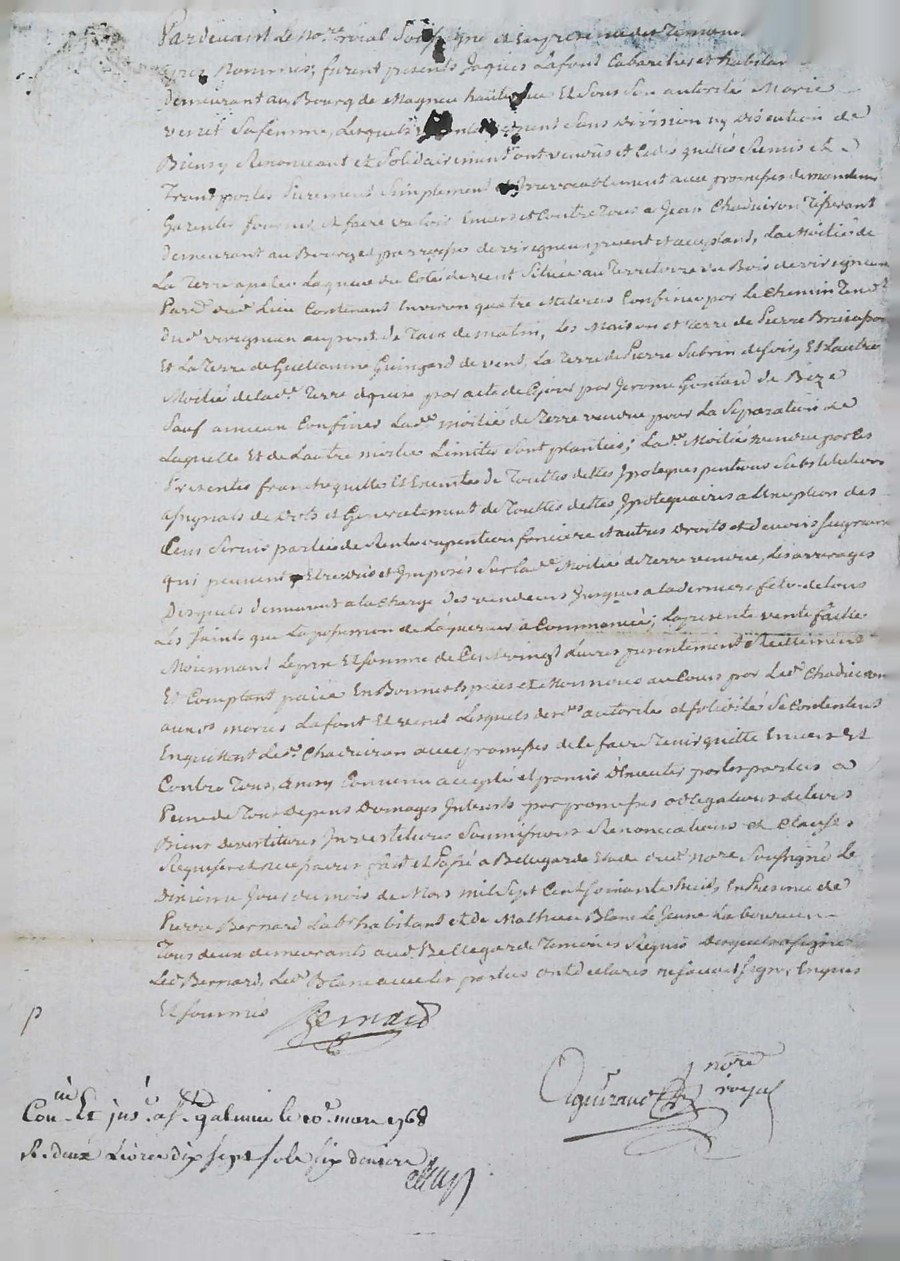 Pardevant Le No.re roial Soussigné et En presence des Temoins
apres Nommes, furent presents Jaques Lafont Cabaretier et habitant
demeurant au Bourg de Magneu hauterive Et Sous Son autorité Marie
venet Sa femme, Lesquels Sans Division ny Discution de
Biens y Renonceant Et Solidairement ont vendus et cedes quittés Remis et
Transportés Purement Simplement et Irrevocablement avec promesses de maintenir
Garentir fournir et faire valoir Envers et Contre Tous a Jean Chaduiron Tisserant
demeurant au Bourg et parroisse de virigneu present et acceptant, La Moitié de
La Terre apelée Laqueue du Coté de vent Située au Territoire du Bois de virigneu
Par.se dud.t Lieu Contenant Environ quatre Confinée par Le Chemin Tend.t
dud.t virigneu au pont de de matin, Les Maison et Terre de Pierre
Et La Terre de Guillaume Guingard de vent, La Terre de Pierre Sabrin de soir, Et L'autre
Moitié de lad.e Terre aquise par acte de Ce jour par Jerome Gontard de Bize
Sauf a mieux Confiner Lad.e moitié de Terre vendue pour La Separation de
Laquelle Et de L'autre moitié Limites Sont plantées; Lad.e Moitié vendue par Ces
Presentes franche quitte Et Exempte de Touttes dettes Ipoteques pentions Substitutions
assignats de dots et Generalement de Touttes dettes Ipotequaires a L'exeption des
Cens Servis parties de Rente pention fonciere et autres Droits et devoirs Seigneuriaux
qui peuvent Etre dus et Imposés Sur lad.e Moitié de Terre vendue, Les arrerages
Desquels demeurent a la Charge des vendeurs Jusques a la derniere fête de tous
Les Saints que La possession de Laquereur a Commencée; La presente vente faitte
Moiennant Le prix Et Somme de Cent vingt Livres presentement Reellement
Et Comptant paiée En Bonnes Especes et Monnoie au Cours par Led.t Chaduiron
aux d.s mariés Lafont Et venet Lesquels des d.s autorité et solidité Se Contentent
En quittent Led.t Chaduiron avec promesses de le faire Tenir quitte Envers Et
Contre Tous, Ainsy Convenu accepté et promis D'executer par Les parties a
Peine de Tous Depens Domages Interests par promesses obligations de leurs
Biens Devestitures Investitures Soumissions Renonciations et Clauses
Requises et necessaires fait et Passé a Bellegarde Etude dud.t No.re Soussigné Le
Dixieme Jour du mois de Mars mil Sept Cent soixante huit, En Presence de
Pierre Bernard Lab.r habitant et de Mathieu Blanc Le Jeune Laboureur
Tous deux demeurants aud.t Bellegarde Temoins Requis Desquels a signé
Led.t Bernard, Led.t Blanc avec les parties ont declarés ne savoir signer Enquis
Et Sommés
Bernard
p
no.re
royal
Con.lé Et ins.é a S.t galmier le 10.e mars 1768
R. deux Livres dix sept sols six deniers